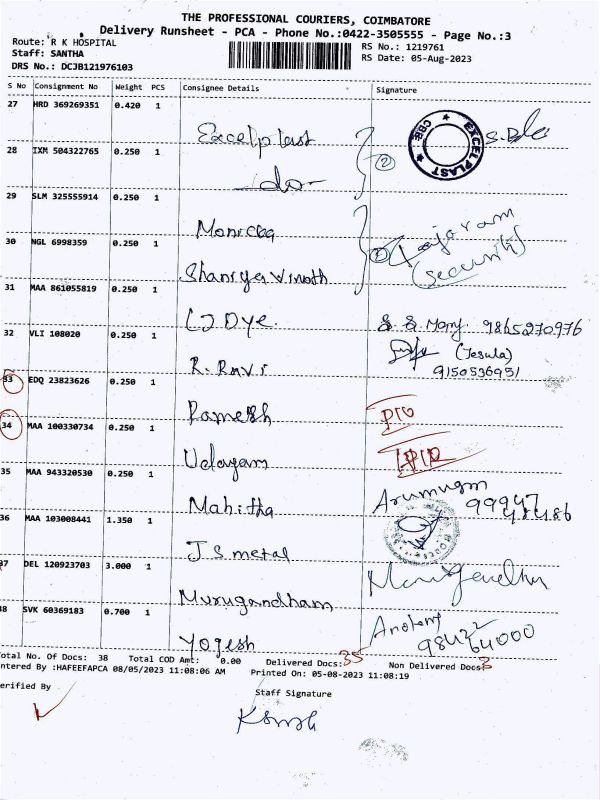 THE PROFESSIONAL COURIERS, COIMBATORE
Delivery Runsheet - PCA - Phone No.:0422-3505555 - Page No.:3
Route: R K HOSPITAL
RS No.: 1219761
Staff: SANTHA
RS Date: 05-Aug-2023
DRS No.: DCJB121976103
S No Consignment No Weight PCS Consignee Details Signature
27 HRD 369269351 0.420 1
Excelplast
EXCEL PLAST CBE
28 IXM 504322765 0.250 1
do 2
29 SLM 325555914 0.250 1
Monicka
30 NGL 6998359 0.250 1
(Security)
31 MAA 861055819 0.250 1
LJ Dye. 9865270976
32 VLI 108020 0.250 1
R. Ravi (Jesula)
9150536951
33 EDQ 23823626 0.250 1
Ramesh
34 MAA 100330734 0.250 1
Udayam
35 MAA 943320530 0.250 1
Mahitha Arumugm 99947
48486
36 MAA 103008441 1.350 1
J S metal
37 DEL 120923703 3.000 1
Murugandham
38 SVK 60369183 0.700 1
Yogesh Antony 98422
64000
Total No. Of Docs: 38 Total COD Amt: 0.00 Delivered Docs: 35 Non Delivered Docs: 3
Entered By :HAFEEFAPCA 08/05/2023 11:08:06 AM Printed On: 05-08-2023 11:08:19
Verified By
Staff Signature